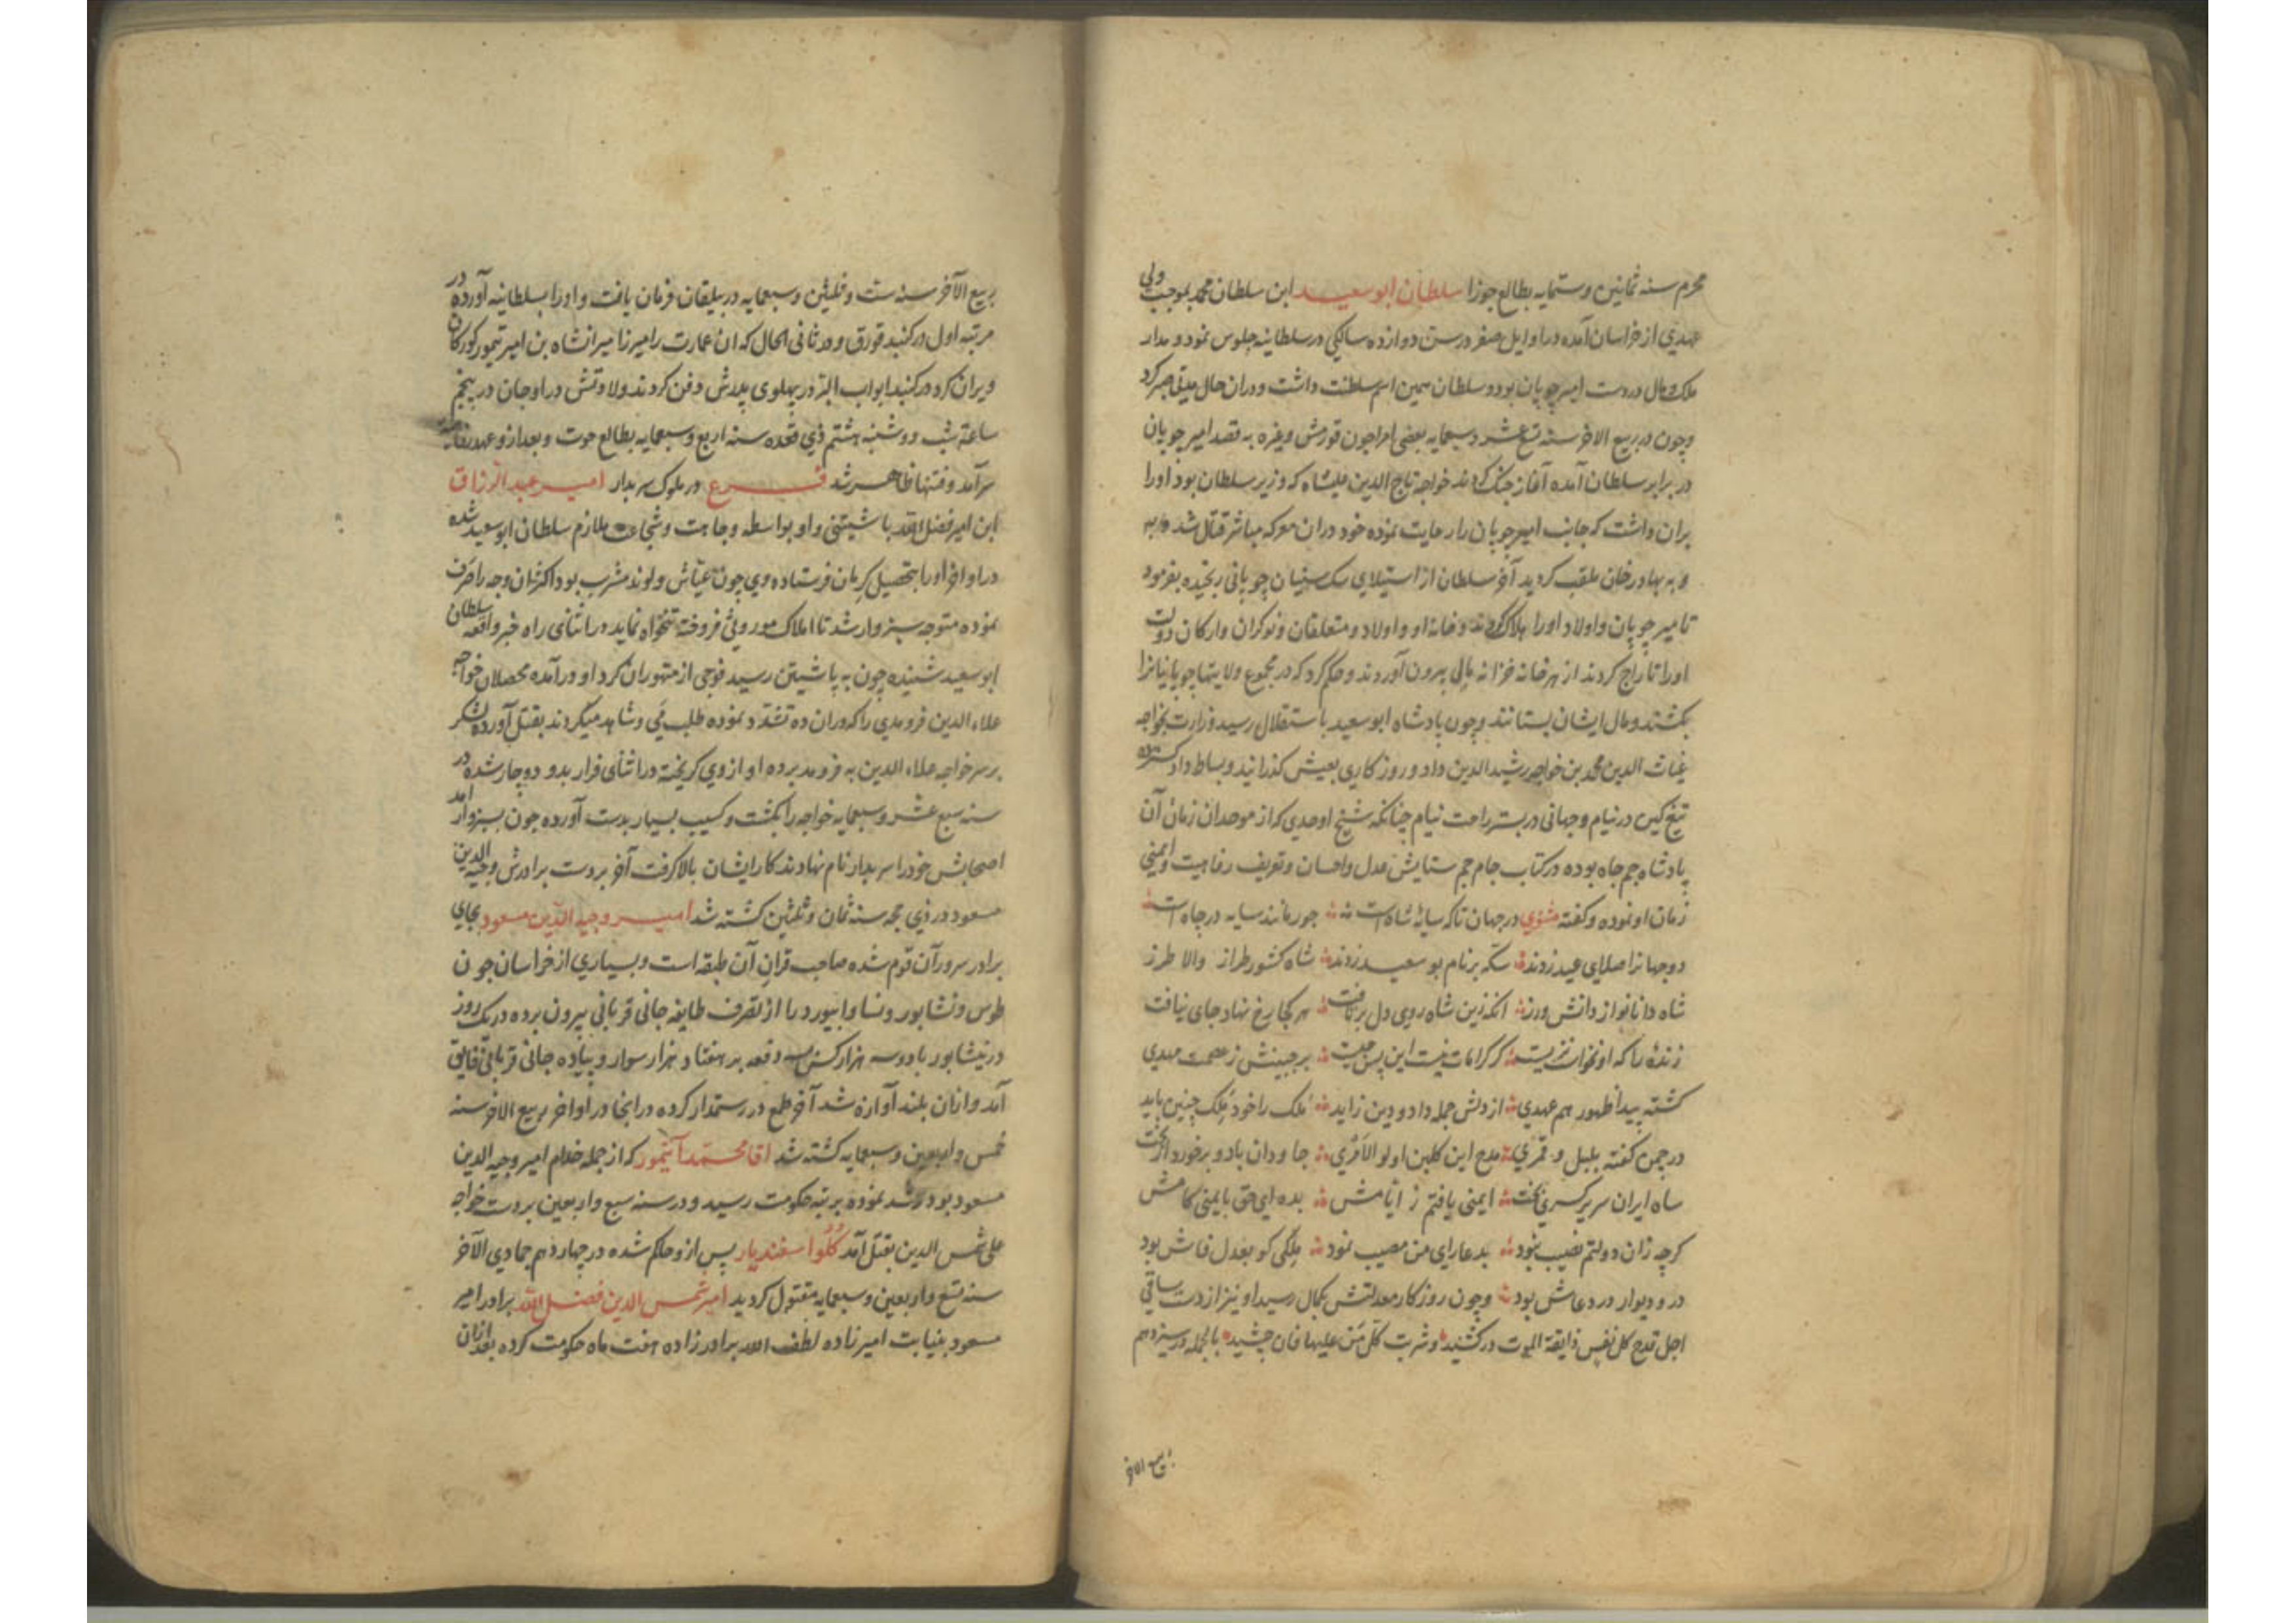 محرم سنه ثمانین و ستمایه بطالع جوزا سلطان ابو سعید ابن سلطان محمد بموجب ولی
عهدی از خراسان آمده در اوایل صفر در سن دوازده سالکی در سلطانیه جلوس نمود و مدار
ملک و مال در دست امیر چوپان بود و سلطان همین اسم سلطنت داشت و دران حال
وچون در ربیع الاخر سنه تسع عشر و سبعمایه بعضی امرا چون قورمش و غیره به قصد امیر چوپان
در برابر سلطان آمده آغاز جنک کردند خواجه تاج الدین علیشاه که وزیر سلطان بود اورا
بران داشت که جانب امیر چوپان را رعایت نموده خود دران معرکه مباشر قتال شد
و به بهادر خان ملقب کردید آخر سلطان از استیلای چوپانی رنجیده بفرمود
تا میر چوپان و اولاد اورا هلاک کردند و خانه او و اولاد و متعلقان و نوکران و ارکان دولت
اورا تاراج کردند از هر خانه خزانه مالی بیرون آوردند و حکم کرد که در مجموع ولایتها چوپانیانرا
بکشتند و مال ایشان بستانند وچون پادشاه ابو سعید باستقلال رسید وزارت بخواجه
غیاث الدین محمد بن خواجه رشید الدین داد و روزکاری بعیش کذرانید و بساط داد کسترده
تیغ کین در نیام و جهانی در بستر راحت نیام چنانکه شیخ اوحدی که از موحدان زمان آن
پادشاه جم جاه بوده در کتاب جام جم ستایش عدل و احسان و تعریف رفاهیت و ایمنی
زمان او نموده و کفته مثنوی در جهان تا که سایۀ شاه است جور مانند سایه در چاه است
دو جهانرا صلای عید زدند سکه بر نام بو سعید زدند شاه کشور طراز والا طرز
شاه دانا نواز دانش ورز انکه زین شاه روی دل بر تافت هر کجا رخ نهاد جای نیافت
زندۀ را که او نخواست نزیست کر کرامات نیست این پس چیست بر جبینش ز عصمت مهدی
کشته پیدا ظهور هم عهدی از دلش جمله داد و دین زاید ملک را خود ملک چنین باید
در چمن کفته بلبل و قمری مدح این کلبن اولو الامری جاودان باد و برخوردار از بخت
شاه ایران سریر کسری تخت ایمنی یافتم ز ایامش بده ای حق بایمنی کامش
کرچه زان دولتم نصیب نبود بدعا رای من مصیب نمود ملکی کو بعدل فاش بود
در و دیوار در دعاش بود وچون روزکار معدلتش بکمال رسید او نیز از دست ساقی
اجل قدح کل نفس ذایقة الموت درکشید و شربت کل من علیها فان چشید بالجمله در سیزدهم
ربیع الاخر
ربیع الآخر سنه ست و ثلثین و سبعمایه در بیلقان فرمان یافت و اورا بسلطانیه آورده در
مرتبه اول در کنبد قورق و در ثانی الحال که ان عمارت را میرزا میرانشاه بن امیر تیمور کورکان
ویران کرد در کنبد ابواب البر در پهلوی پدرش دفن کردند ولادتش در اوجان در پنجم
ساعة شب دوشنبه هشتم ذی قعده سنه اربع و سبعمایه بطالع حوت و بعد ازو عهد
سر آمد و فتنها ظاهر شد فرع در ملوک سربدار امیر عبد الرزاق
ابن امیر فضل الله باشتینی و او بواسطه وجاهت و شجاعت ملازم سلطان ابو سعید شده
در اواخر اورا بتحصیل کرمان فرستاده وی چون عیاش و لوند مشرب بود اکثر ان وجه را صرف
نموده متوجه سبزوار شد تا املاک موروثی فروخته تنخواه نماید در اثنای راه خبر واقعه سلطان
ابو سعید شنیده چون به باشتین رسید فوجی از متهوران کرد او در آمده محصلان خواجه
علاء الدین فریومدی را که دران ده تشدد نموده طلب می و شاهد میکردند بقتل آورده لشکر
بر سر خواجه علاء الدین به فریومد برده او از وی کریخته در اثنای فرار بدو دوچار شده در
سنه سبع عشر و سبعمایه خواجه را بکشت و کسیب بسیار بدست آورده چون بسبزوار آمد
اصحابش خود را سربدار نام نهادند کار ایشان بالا کرفت آخر بردست برادرش وجیه الدین
مسعود در ذی حجه سنه ثمان و ثلثین کشته شد امیر وجیه الدین مسعود بجای
برادر سرور آن قوم شده صاحب قران آن طبقه است و بسیاری از خراسان چون
طوس و نشابور و نسا و ابیورد را از تصرف طایفه جانی قربانی بیرون برده در یک روز
در نیشابور با دو سه هزار کس سه دفعه بر هفتاد هزار سوار و پیاده جانی قربانی فایق
آمد و ازان بلند آوازه شد آخر طمع در رستمدار کرده در انجا در اواخر ربیع الاخر سنه
خمس و اربعین و سبعمایه کشته شد اقا محمد آیتمور که از جمله خدام امیر وجیه الدین
مسعود بود رشد نموده بر تبه حکومت رسید و در سنه سبع و اربعین بردست خواجه
علی شمس الدین بقتل آمد کلو اسفندیار پس ازو حاکم شده در چهاردهم جمادی الآخر
سنه تسع و اربعین و سبعمایه مقتول کردید امیر شمس الدین فضل الله برادر امیر
مسعود بنیابت امیرزاده لطف الله برادرزاده هفت ماه حکومت کرده بعد ازان